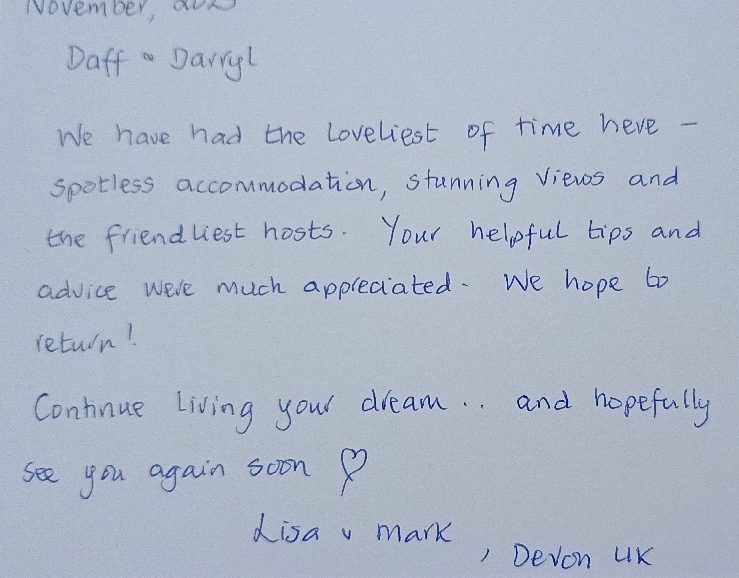 November, 2023
Daff & Darryl
We have had the loveliest of time here -
spotless accommodation, stunning views and
the friendliest hosts. Your helpful tips and
advice were much appreciated. We hope to
return!
Continue living your dream .. and hopefully
see you again soon ♡
Lisa & Mark
, Devon UK